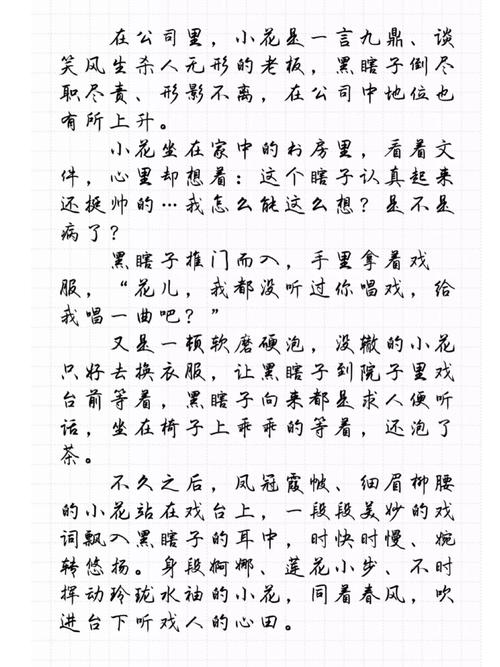 在公司里，小花是一言九鼎、谈
笑风生杀人无形的老板，黑瞎子倒尽
职尽责、形影不离，在公司中地位也
有所上升。
小花坐在家中的书房里，看着文
件，心里却想着：这个瞎子认真起来
还挺帅的…我怎么能这么想？是不是
病了？
黑瞎子推门而入，手里拿着戏
服，“花儿，我都没听过你唱戏，给
我唱一曲吧？”
又是一顿软磨硬泡，没辙的小花
只好去换衣服，让黑瞎子到院子里戏
台前等着，黑瞎子向来都是求人便听
话，坐在椅子上乖乖的等着，还泡了
茶。
不久之后，凤冠霞帔、细眉柳腰
的小花站在戏台上，一段段美妙的戏
词飘入黑瞎子的耳中，时快时慢、婉
转悠扬。身段婀娜、莲花小步、不时
挥动玲珑水袖的小花，同着春风，吹
进台下听戏人的心田。